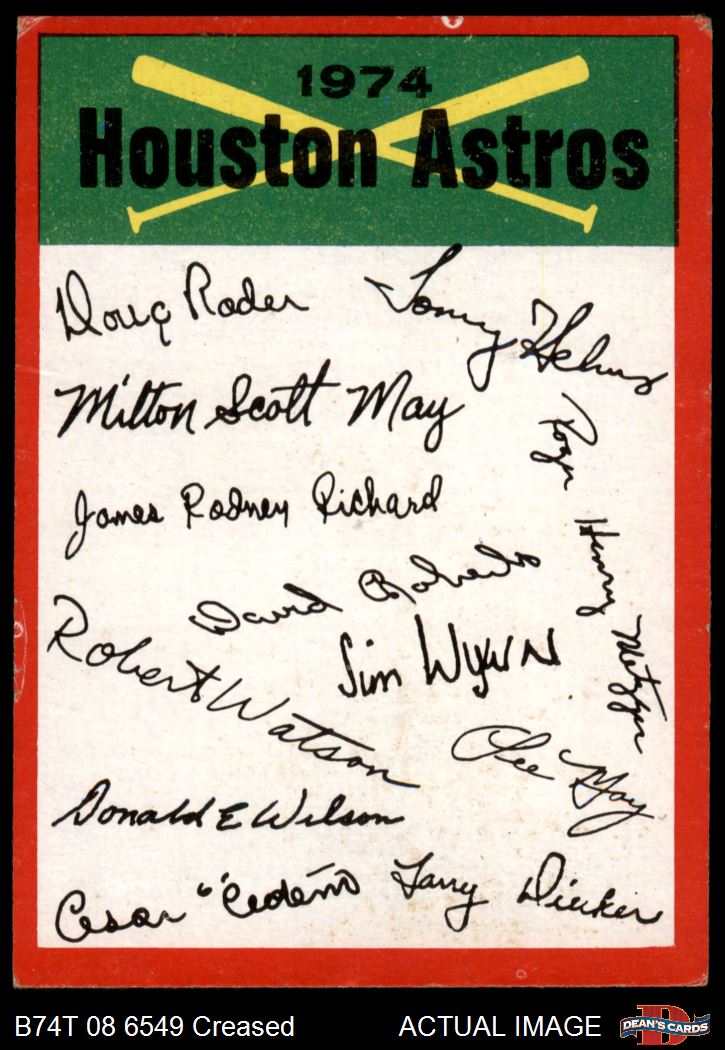 1974
Houston Astros
Doug Rader
Tommy Helms
Milton Scott May
Roger Henry Metzger
James Rodney Richard
David Roberts
Jim Wynn
Robert Watson
Lee May
Donald E Wilson
Cesar "Cedeño
Larry Dierker
B74T 08 6549 Creased
ACTUAL IMAGE
DEAN'S CARDS